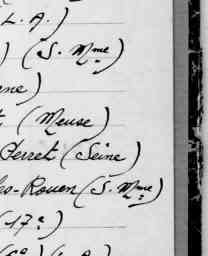 L. A.)
) (S. Mme)
ne)
(Meuse)
Perret (Seine)
es-Rouen (S. Mme)
(17e)